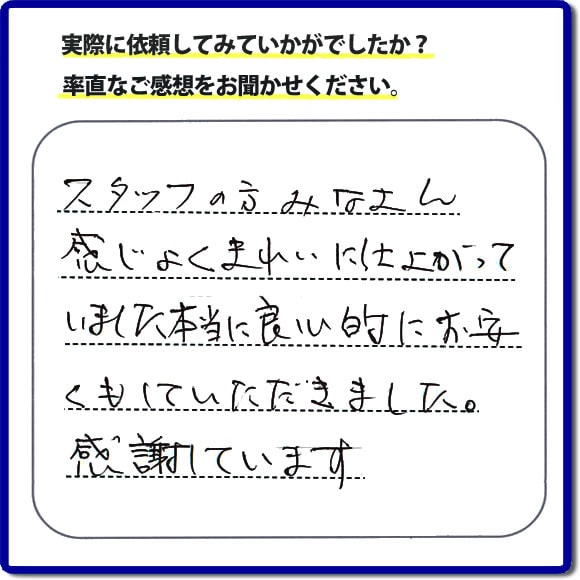 実際に依頼してみていかがでしたか？
率直なご感想をお聞かせください。
スタッフの方みなさん
感じよくきれいに仕上がって
いました本当に良い的にお安
くもしていただきました。
感謝しています